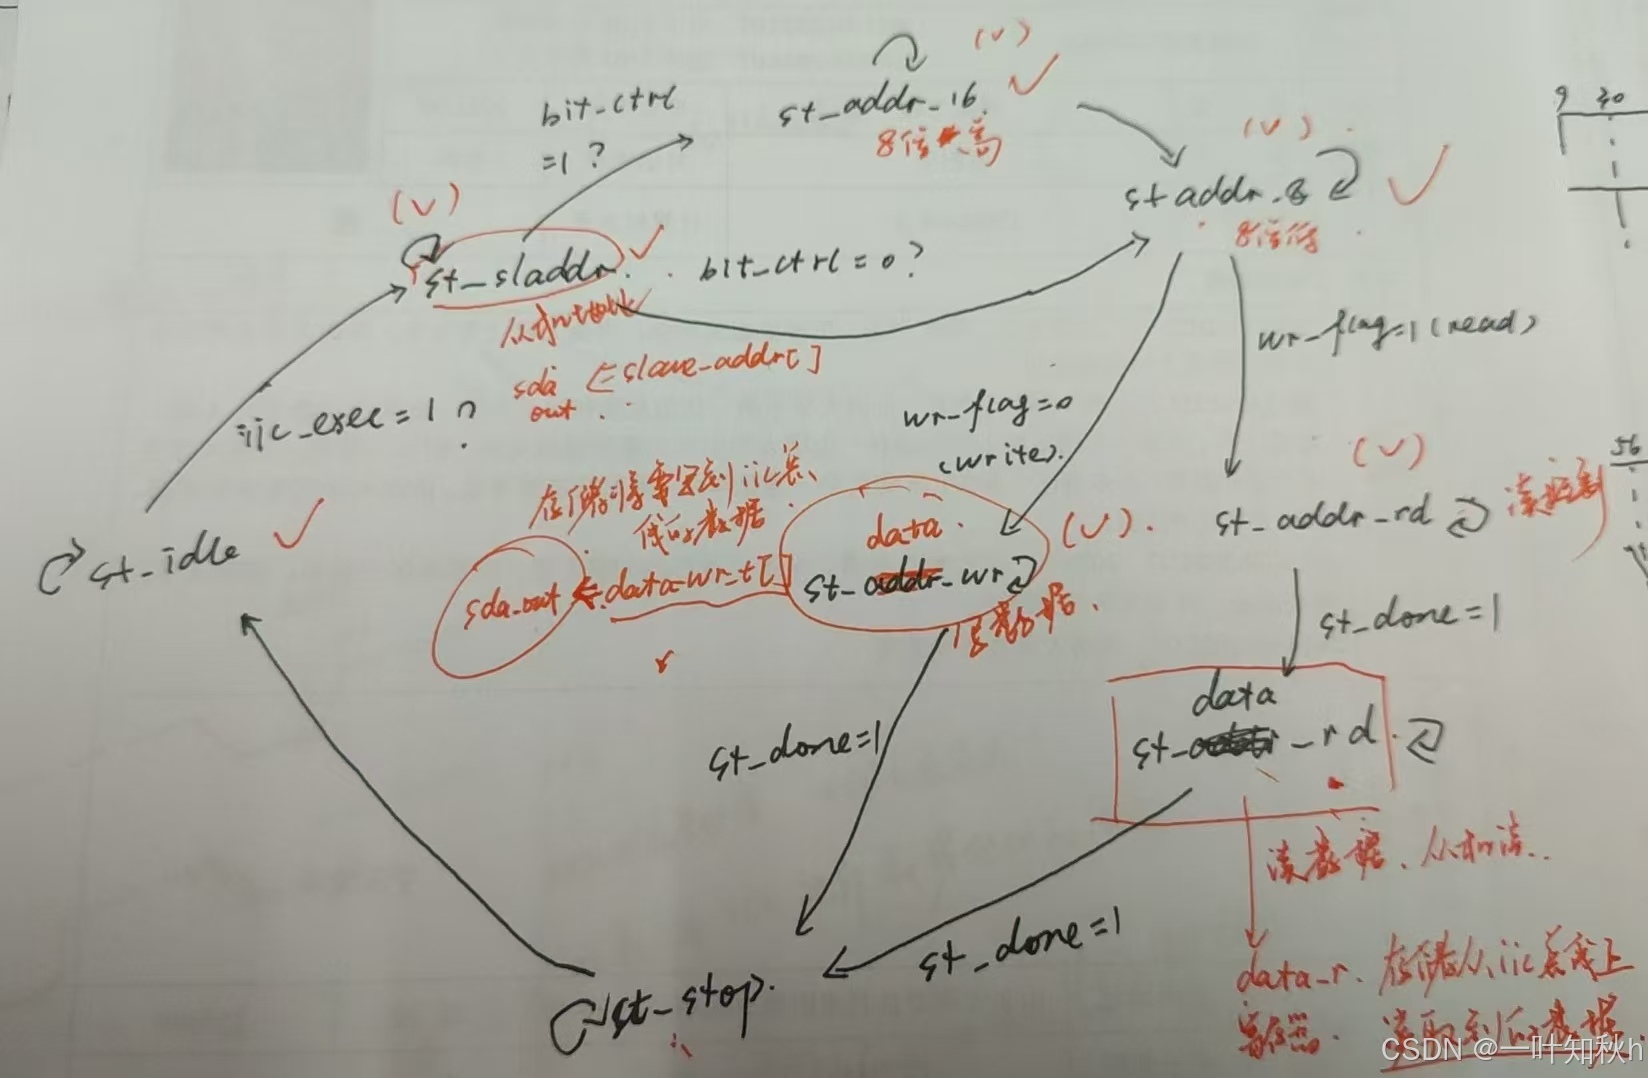 (√)
bit_ctrl
=1 ?
st_addr_16.
8位 高
(√)
st addr_8
8位低
(√)
st_sladdr.
bit_ctrl = 0 ?
从机地址
sda
out
⇐ slave-addr[ ]
iic_exec = 1 ?
wr-flag=1 (read)
wr-flag=0
(write).
存储
需要写到iic总
线的数据
data
st_addr_wr
写数据
(√)
(√)
st_addr_rd
st_idle
sda_out
data-wr_t[ ]
st_done = 1
st_done=1
data
st_ _rd
读数据、从机读..
st_done=1
st_stop.
data_r. 存储从iic总线上
寄存器. 读取到的数据.
9 30
56
CSDN @一叶知秋h